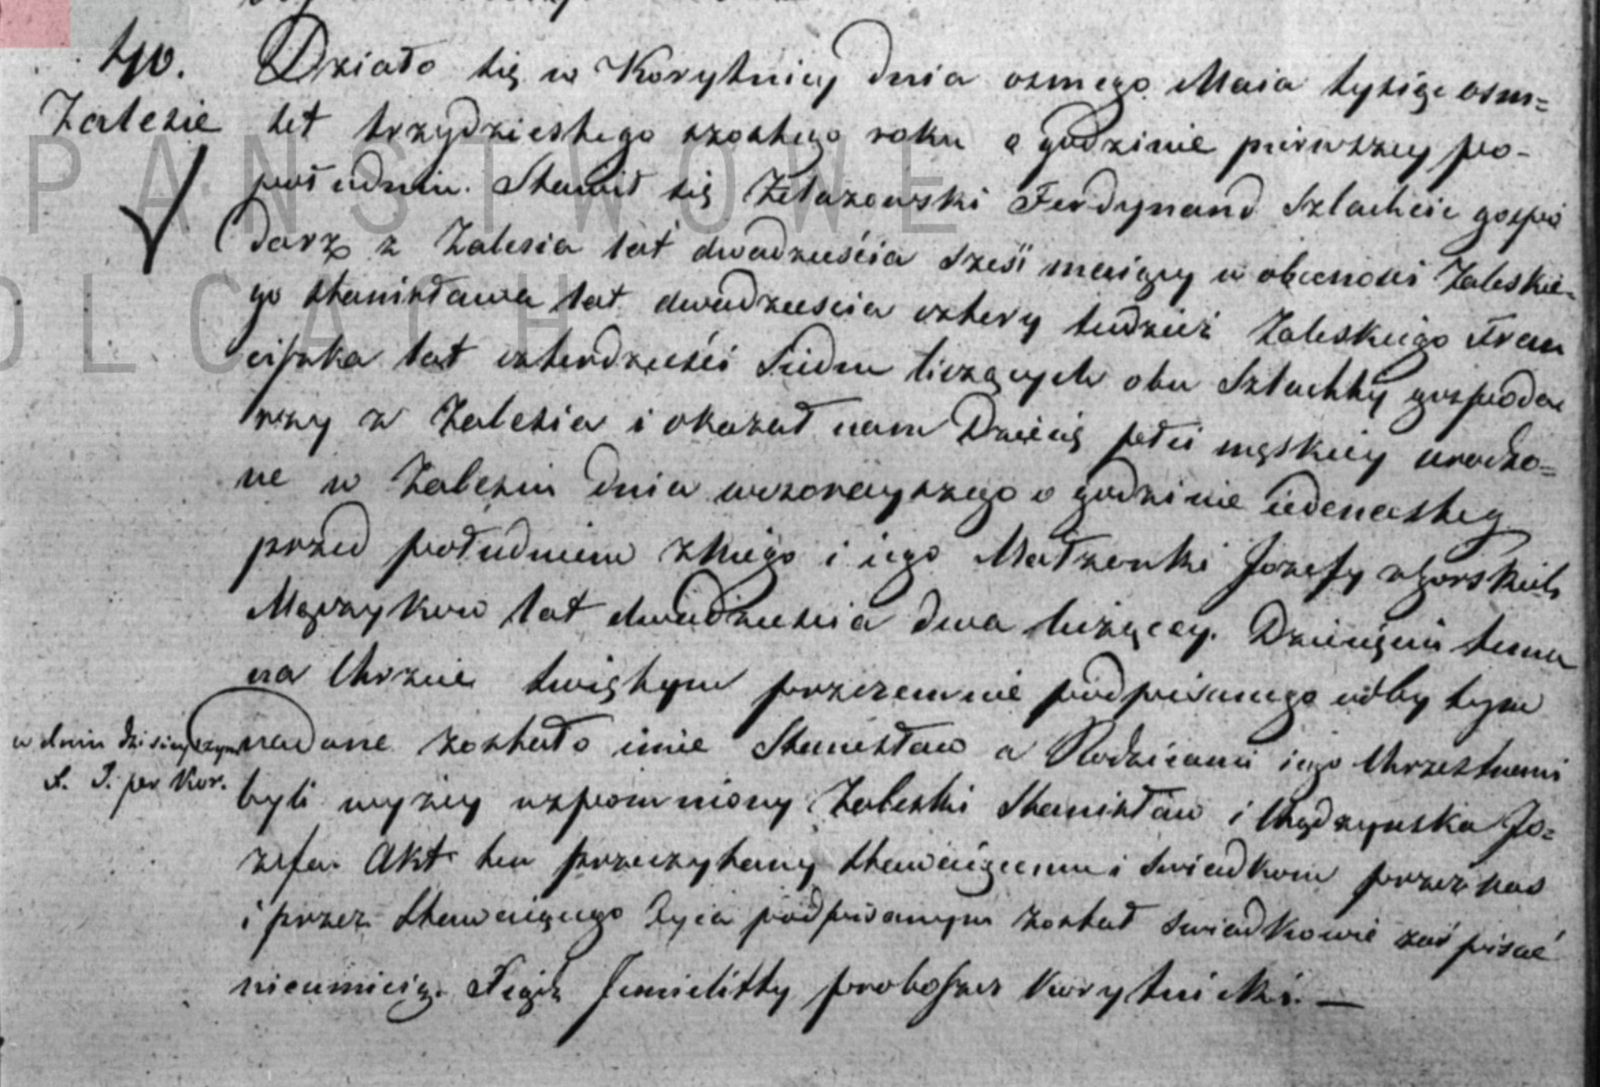 40.
Zalesie
Działo się w Korytnicy dnia osmego Maia tysiąc osm=
set trzydziestego szostego roku o godzinie pierwszey po-
południu. Stawił się Żelazowski Ferdynand Szlachcic gospo
darz z Zalesia lat dwadzieścia sześć maiący w obecności Zaleskie-
go Stanisława lat dwadzieścia cztery tudzież Zaleskiego Fran
ciszka lat czterdzieści siedm liczących obu Szlachty gospoda
rzy z Zalesia i okazał nam Dziecię płci męskiey urodzo=
ne w Zalesiu dnia wczorayszego o godzinie iedenastey
przed południem z niego i iego Małżonki Jozefy z Gorskich
lat dwadzieścia dwa liczącey. Dziecięciu temu
na Chrzcie Swiętym przezemnie podpisanego odbytym
w dniu dzisieyszym
nadane zostało imie Stanisław a Rodzicami iego Chrzestnemi
byli wyżey wspomniony Zaleski Stanisław i Jo=
zefa. Akt ten przeczytany stawaiącemu i swiadkom przez nas
i przez stawaiącego Oyca podpisanym został swiadkowie zaś pisać
nieumieią. Jemielitty proboszcz Korytnicki. —